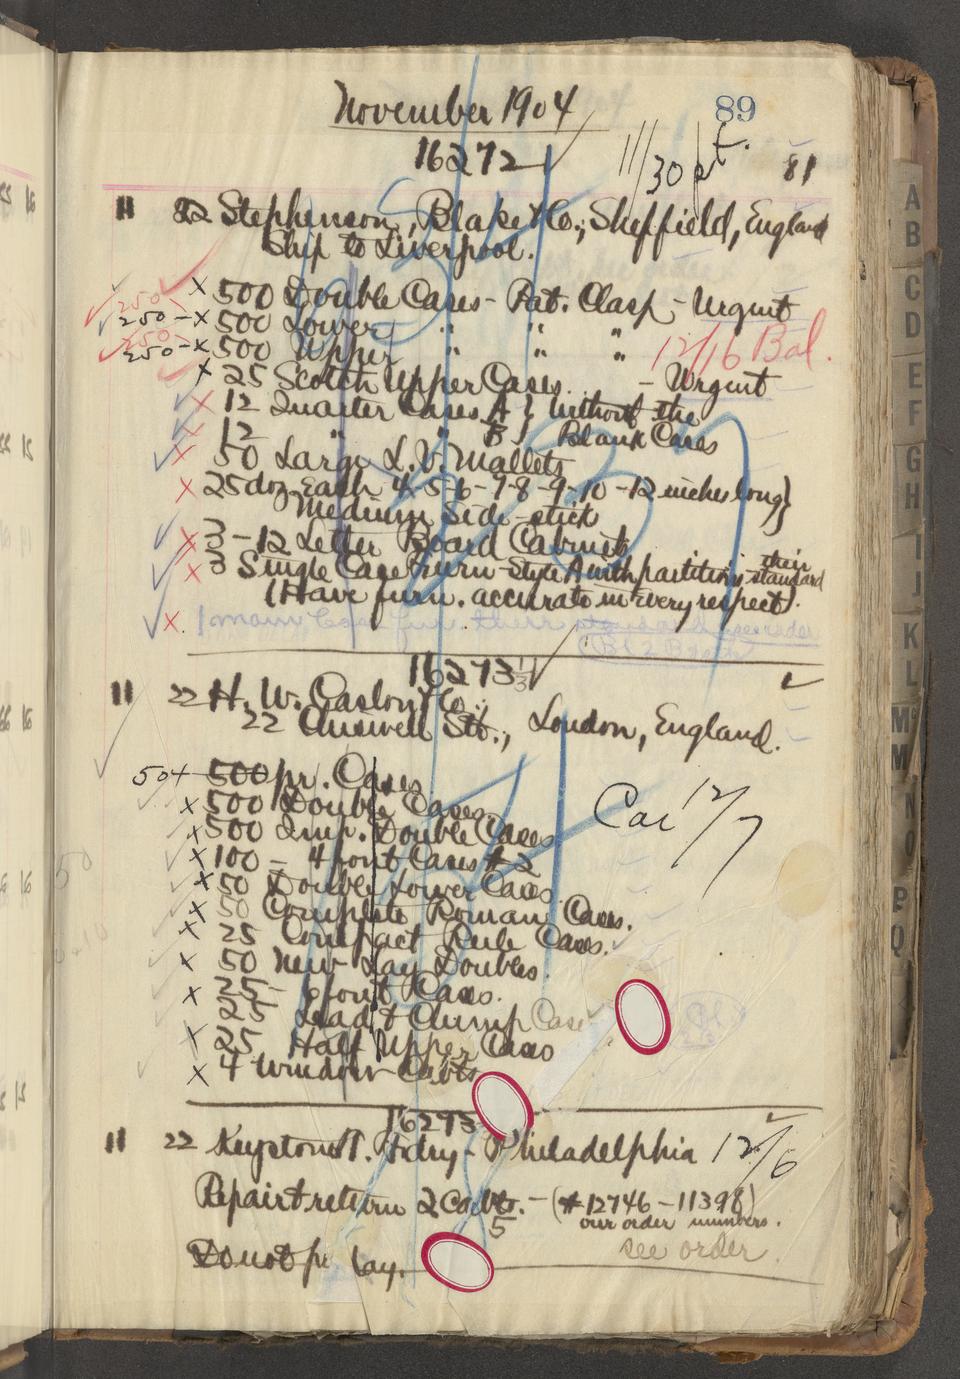 November 1904
89
16272
11/30 pt.
81
11 22 Stephenson, Blake & Co., Sheffield, England
Ship to Liverpool.
x 500 Double Cases - Pat. Clasp - Urgent
250
250 - x 500 Lower " " "
250
250 - x 500 Upper " " "
12/16 Bal.
x 25 Scotch Upper Cases - Urgent
x 12 Quarter Cases A } without the
x 12 " " B } Blank Cases
x 50 Large L.V. Mallets
x 25 doz. Each 4-5-6-7-8-9-10-12 inches long }
Medium Side-stick
x 3 - 12 Letter Board Cabinets
x 3 Single Case Furn-Style A with partitions their standard
(Have furn. accurate in every respect).
x. 1 for their
16273
11 22 H. W. Caslon & Co.,
22 Chiswell St., London, England.
50 x 500 pr. Cases
x 500 Double Cases
x 500 Imp. Double Cases
Car 12/7
x 100 - 4 font Cases # 2
x 50 Double Lower Cases
x 50 Complete Roman Cases.
x 25 Compact Rule Cases.
x 50 New Lay Doubles.
x 25 - 6 font Cases.
25 Lead & Clump Case
x 25 Half Upper Cases
x 4 Window Cabts
16293
11 22 Keystone T. Fdry - Philadelphia 12/6
Repair & return 2 Cabts. - (# 12746 - 11398)
5 our order numbers.
see order
Do not lay.
A
B
C
D
E
F
G
H
I
J
K
L
M
M
N
O
P
Q